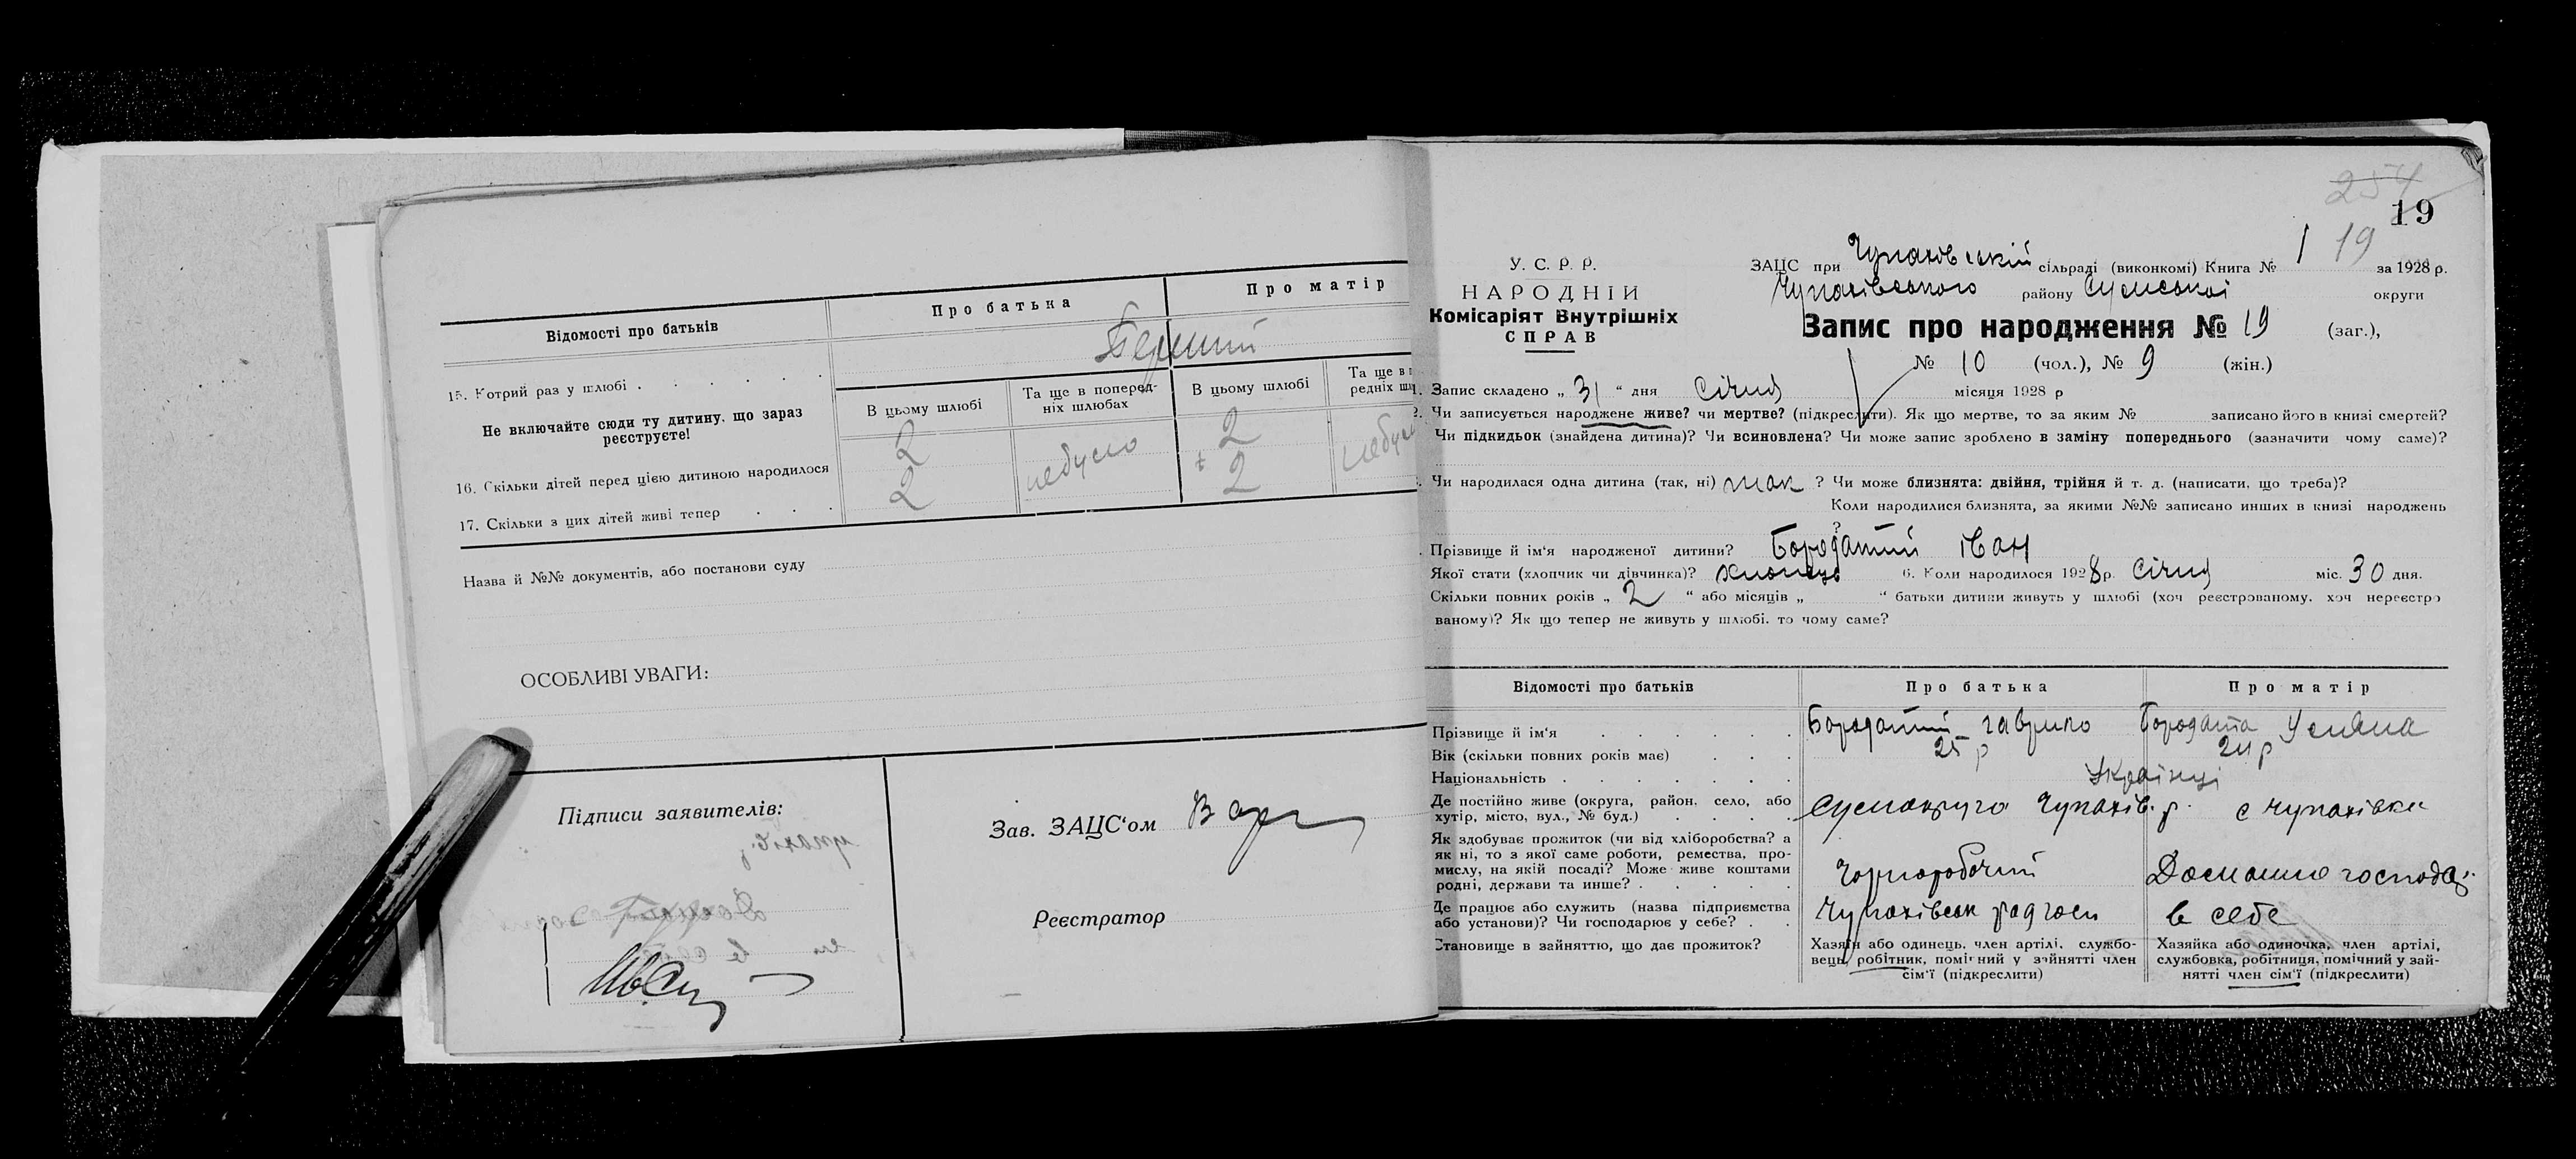 Відомості про батьків
Про батька
Про матір
15. Котрий раз у шлюбі
Перший
Не включайте сюди ту дитину, що зараз реєструєте!
В цьому шлюбі
Та ще в поперед-
ніх шлюбах
В цьому шлюбі
Та ще в п
редніх шл
16. Скільки дітей перед цією дитиною народилося
2
небуло
2
17. Скільки з цих дітей живі тепер
2
2
Назва й №№ документів, або постанови суду
ОСОБЛИВІ УВАГИ:
Підписи заявителів:
Зав. ЗАЦС'ом
Реєстратор
254
19
У. С. Р. Р.
НАРОДНІЙ
Комісаріят Внутрішніх
СПРАВ
ЗАЦС при Чупаховській сільраді (виконкомі) Книга № 1 19 за 1928 р.
Чупахівського району Сумської округи
Запис про народження № 19 (заг.),
№ 10 (чол.), № 9 (жін.)
1. Запис складено „ 31 “ дня Січня місяця 1928 р
2. Чи записується народжене живе? чи мертве? (підкреслити). Як що мертве, то за яким № записано його в книзі смертей?
Чи підкидьок (знайдена дитина)? Чи всиновлена? Чи може запис зроблено в заміну попереднього (зазначити чому саме)?
Чи народилася одна дитина (так, ні) так ? Чи може близнята: двійня, трійня й т. д. (написати, що треба)?
Коли народилися близнята, за якими №№ записано инших в книзі народжень
?
Прізвище й ім'я народженої дитини? Бородатий Іван
Якої стати (хлопчик чи дівчинка)? хлопець 6. Коли народилося 1928 р. Січня міс. 30 дня.
Скільки повних років „ 2 “ або місяців „ “ батьки дитини живуть у шлюбі (хоч реєстрованому, хоч нереєстро
ваному)? Як що тепер не живуть у шлюбі, то чому саме?
Відомості про батьків
Про батька
Про матір
Прізвище й ім'я
Бородатий Гаврило
Бородата Уляна
Вік (скільки повних років має)
25 р
24 р
Національність
Українці
Де постійно живе (округа, район, село, або
хутір, місто, вул., № буд.)
Сумокруго Чупахів. р. с Чупахівка
Як здобуває прожиток (чи від хліборобства? а
як ні, то з якої саме роботи, ремества, про-
мислу, на якій посаді? Може живе коштами
родні, держави та инше?
Чорноробочий
Домашнє господар.
Де працює або служить (назва підприємства
або установи)? Чи господарює у себе?
Чупахівськ радгосп
в себе
Становище в зайняттю, що дає прожиток?
Хазяїн або одинець, член артілі, службо-
вець, робітник, помічний у зайнятті член
сім'ї (підкреслити)
Хазяйка або одиночка, член артілі,
службовка, робітниця, помічний у зай-
нятті член сім'ї (підкреслити)